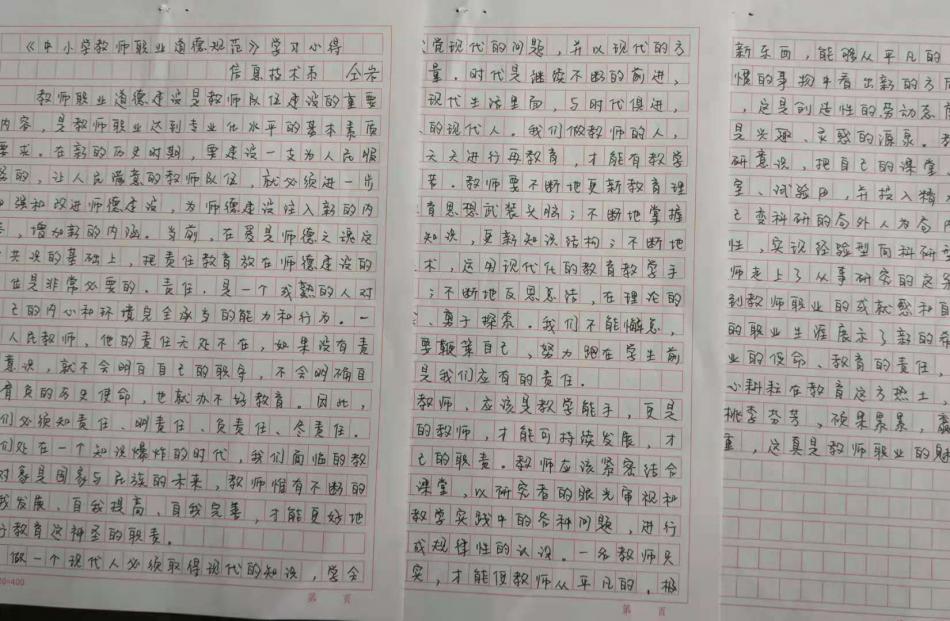 《中小学教师职业道德规范》学习心得
信息技术系 仝岩
教师职业道德建设是教师队伍建设的重要
内容，是教师职业达到专业化水平的基本素质
要求。在新的历史时期，要建设一支为人民服
务的，让人民满意的教师队伍，就必须进一步
加强和改进师德建设，为师德建设注入新的内
，增加新的内涵。当前，在爱是师德之魂这
共识的基础上，把责任教育放在师德建设的
位是非常必要的。责任，是一个成熟的人对
己的内心和环境完全承当的能力和行为。一
人民教师，他的责任无处不在，如果没有责
意识，就不会明白自己的职争，不会明确自
肩负的历史使命，也就办不好教育。因此，
们必须知责任、明责任、负责任、尽责任。
们处在一个知识爆炸的时代，我们面临的教
对象是国家与民族的未来，教师惟有不断的
我发展、自我提高、自我完善，才能更好地
行教育这神圣的职责。
做一个现代人必须取得现代的知识，学会
20×400
第 页
觉现代的问题，并以现代的方
量。时代是继续不断的前进，
现代生活里面，与时代俱进，
的现代人。我们做教师的人，
天天进行再教育，才能有教学
苦。教师要不断地更新教育理
育思想武装头脑；不断地掌握
知识，更新知识结构；不断地
术，运用现代化的教育教学手
；不断地反思总结，在理论的
、勇于探索。我们不能懈怠，
要鞭策自己，努力跑在学生前
是我们应有的责任。
教师，应该是教学能手，更是
的教师，才能可持续发展，才
己的职责。教师应该紧密结合
课堂，以研究者的眼光审视和
教学实践中的各种问题，进行
成规律性的认识。一名教师只
究，才能使教师从平凡的、极
第 页
新东西，能够从平凡的
惯的事物中看出新的方
，这是创造性的劳动态度
是兴趣、灵感的源泉。
研意识，把自己的课堂
室、试验田，并投入精力
己变科研的局外人为局内
性，实现经验型向科研型
师走上了从事研究的这条
到教师职业的成就感和自
的职业生涯展示了新的希
业的使命、教育的责任，
心耕耘在教育这方热土，
桃李芬芳、硕果累累，
，这真是教师职业的魅